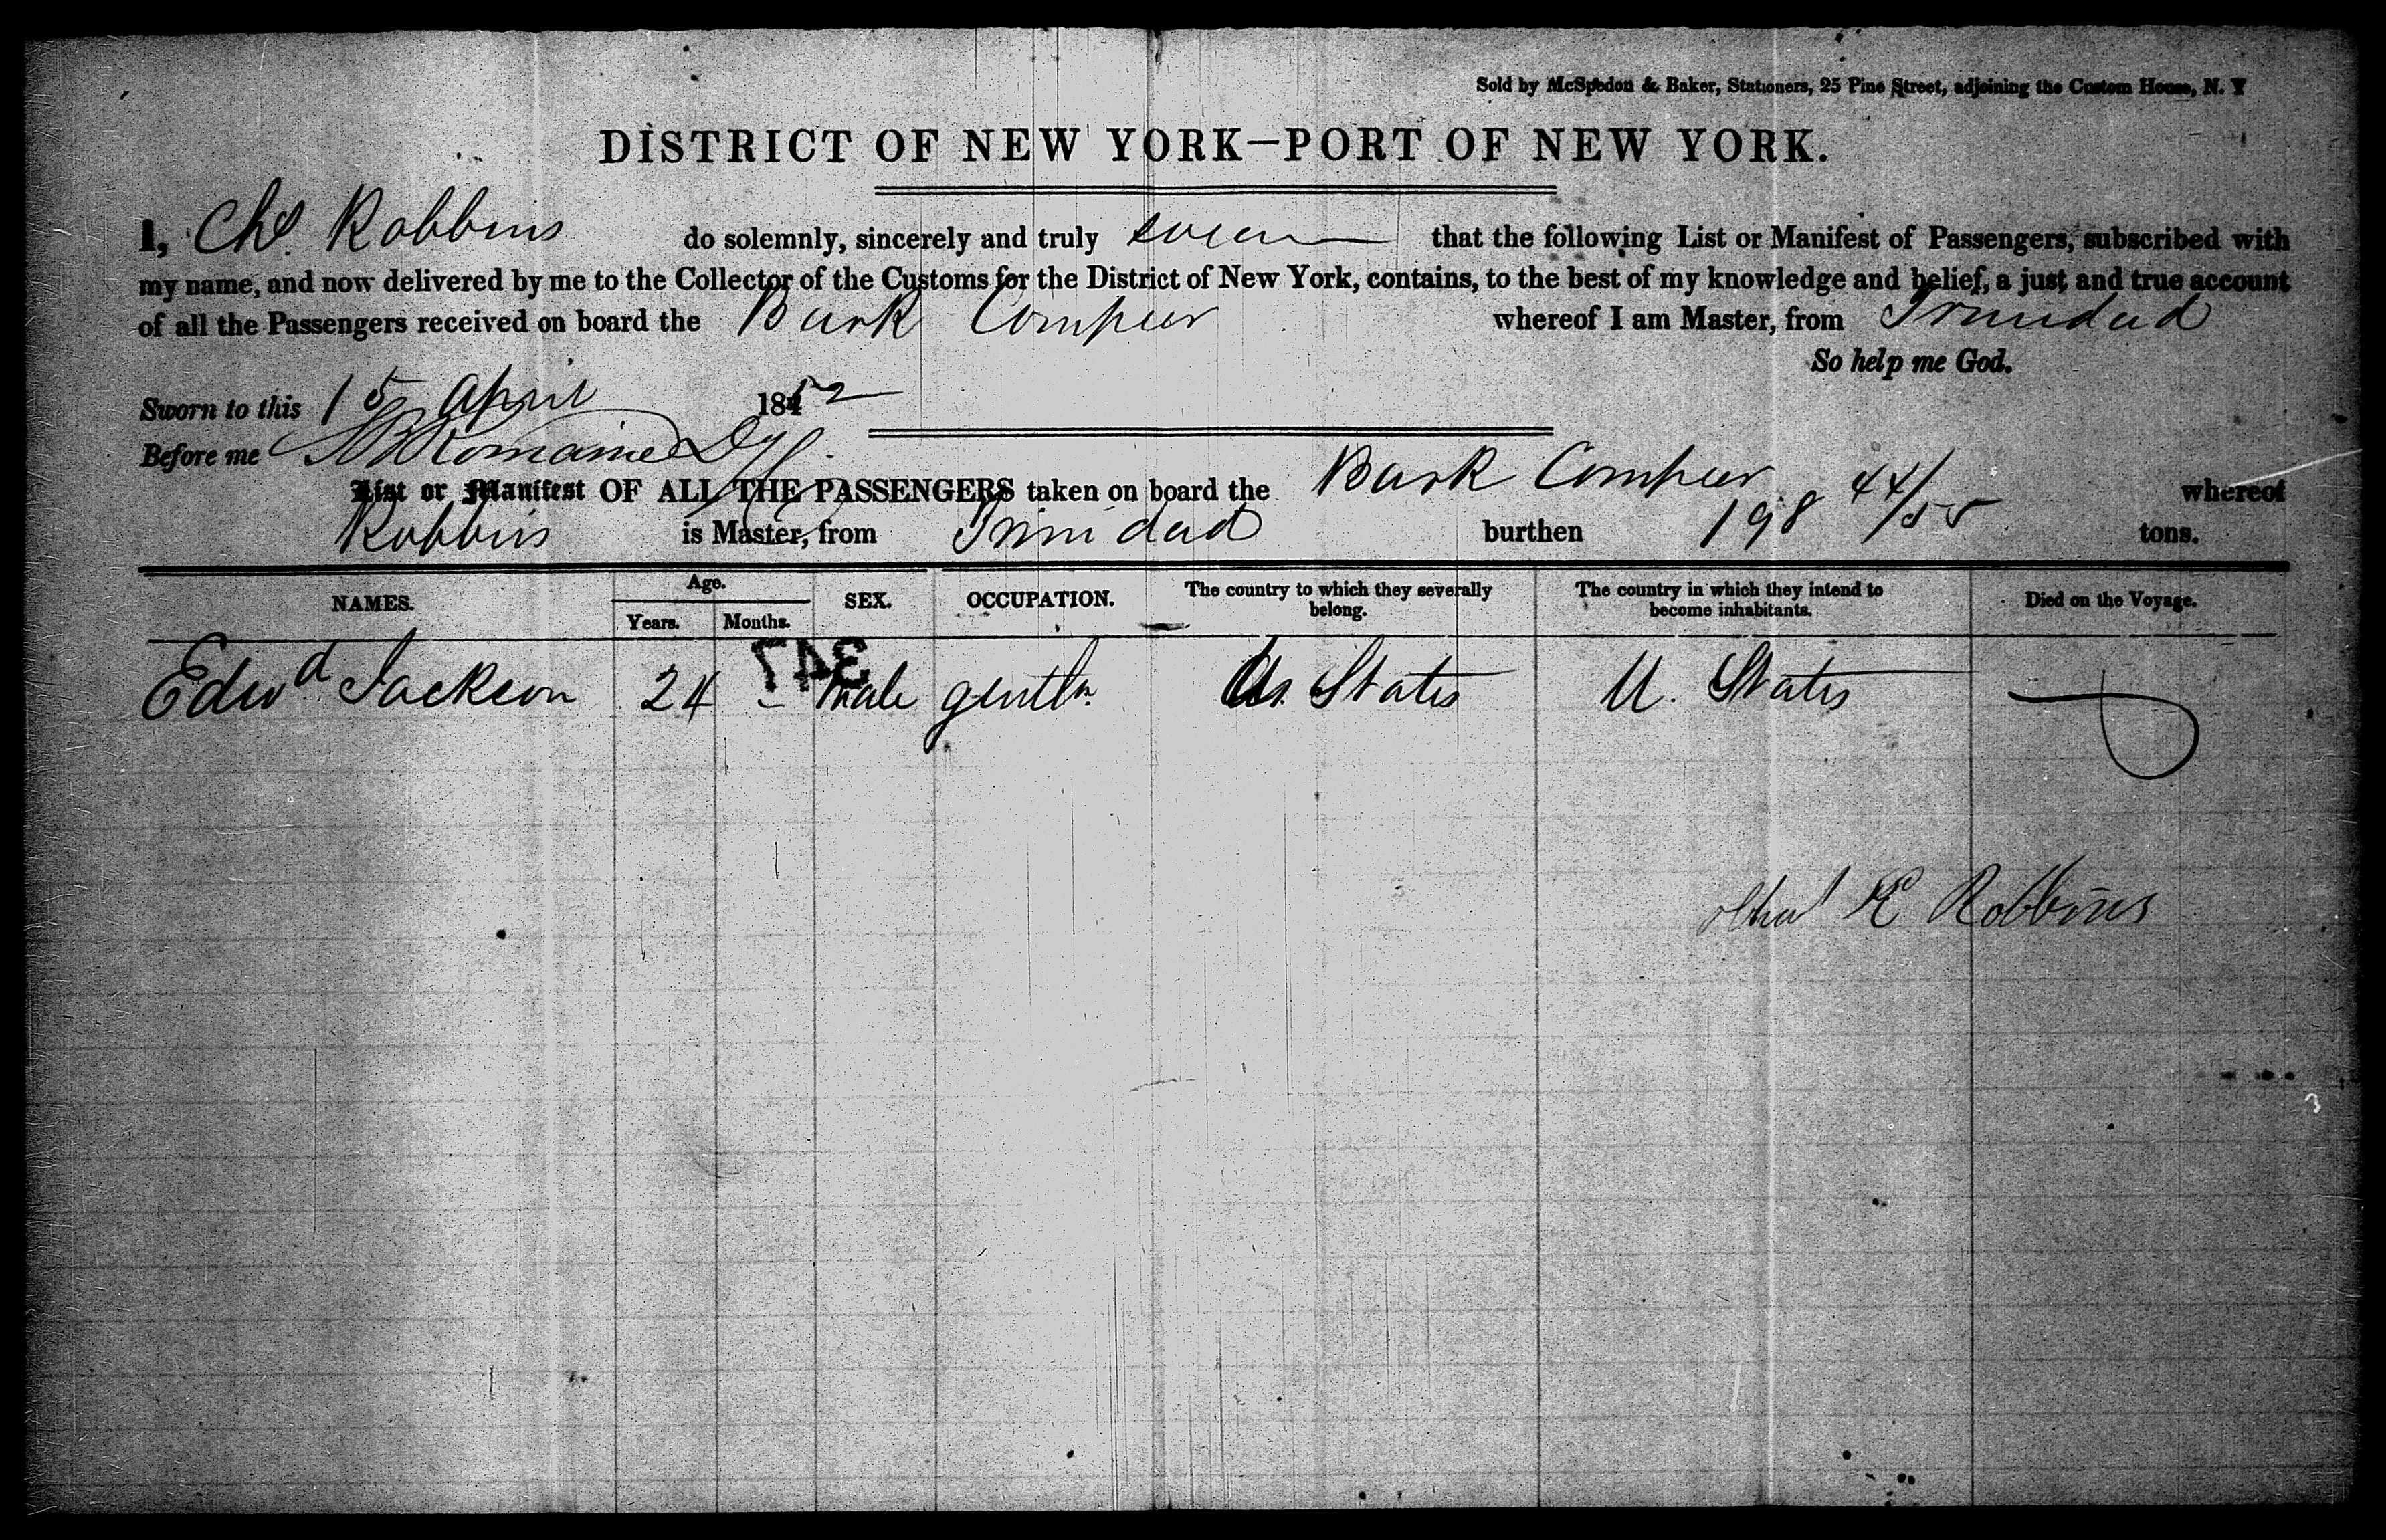 Sold by McSpedon & Baker, Stationers, 25 Pine Street, adjoining the Custom House, N. Y
DISTRICT OF NEW YORK—PORT OF NEW YORK.
I, Chs. Robbins do solemnly, sincerely and truly swear that the following List or Manifest of Passengers, subscribed with
my name, and now delivered by me to the Collector of the Customs for the District of New York, contains, to the best of my knowledge and belief, a just and true account
of all the Passengers received on board the Bark Compeer whereof I am Master, from Trinidad
So help me God.
Sworn to this 15 April 1852
Before me Romaine
List or Manifest OF ALL THE PASSENGERS taken on board the Bark Compeer whereof
Robbins is Master, from Trinidad burthen 198 44/55 tons.
NAMES. Age. Years. Months. SEX. OCCUPATION. The country to which they severally belong. The country in which they intend to become inhabitants. Died on the Voyage.
347
Edwd Jackson 24 - Male gentln. U. States U. States
Chas E Robbins